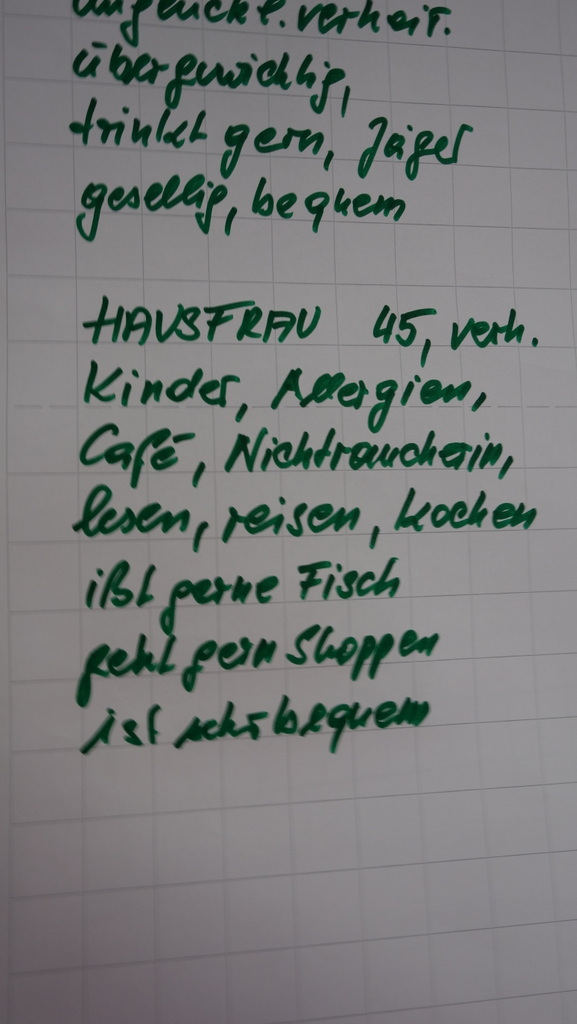 unglückl. verheir.
übergewichtig,
trinkt gern, Jäger
gesellig, bequem
HAUSFRAU 45, verh.
Kinder, Allergien,
Café, Nichtraucherin,
lesen, reisen, kochen
ißt gerne Fisch
geht gern Shoppen
ist sehr bequem